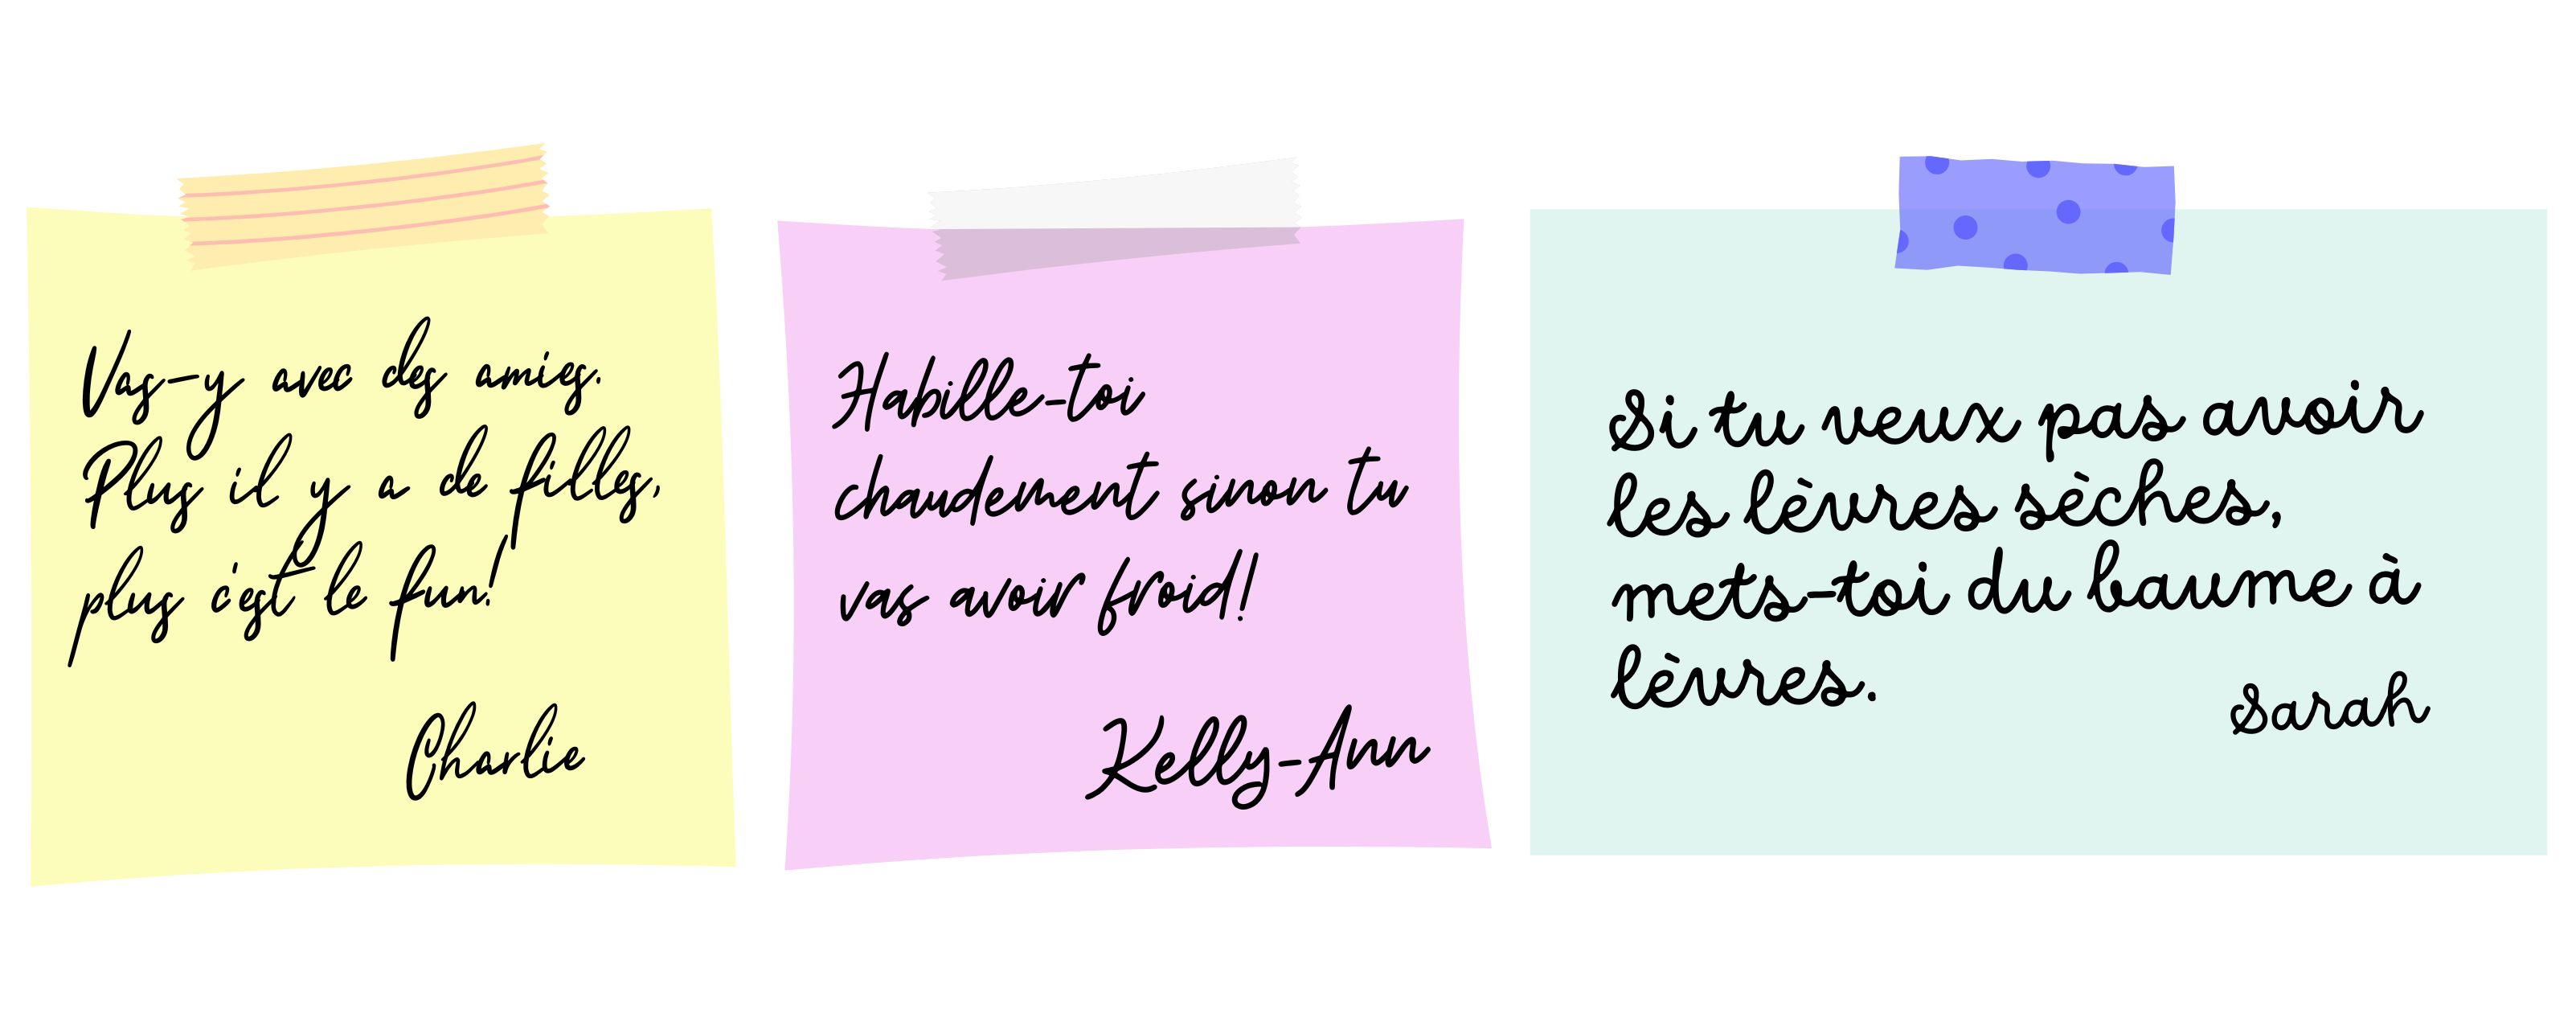 Vas-y avec des amies.
Plus il y a de filles,
plus c'est le fun!
Charlie
Habille-toi
chaudement sinon tu
vas avoir froid!
Kelly-Ann
Si tu veux pas avoir
les lèvres sèches,
mets-toi du baume à
lèvres.
Sarah